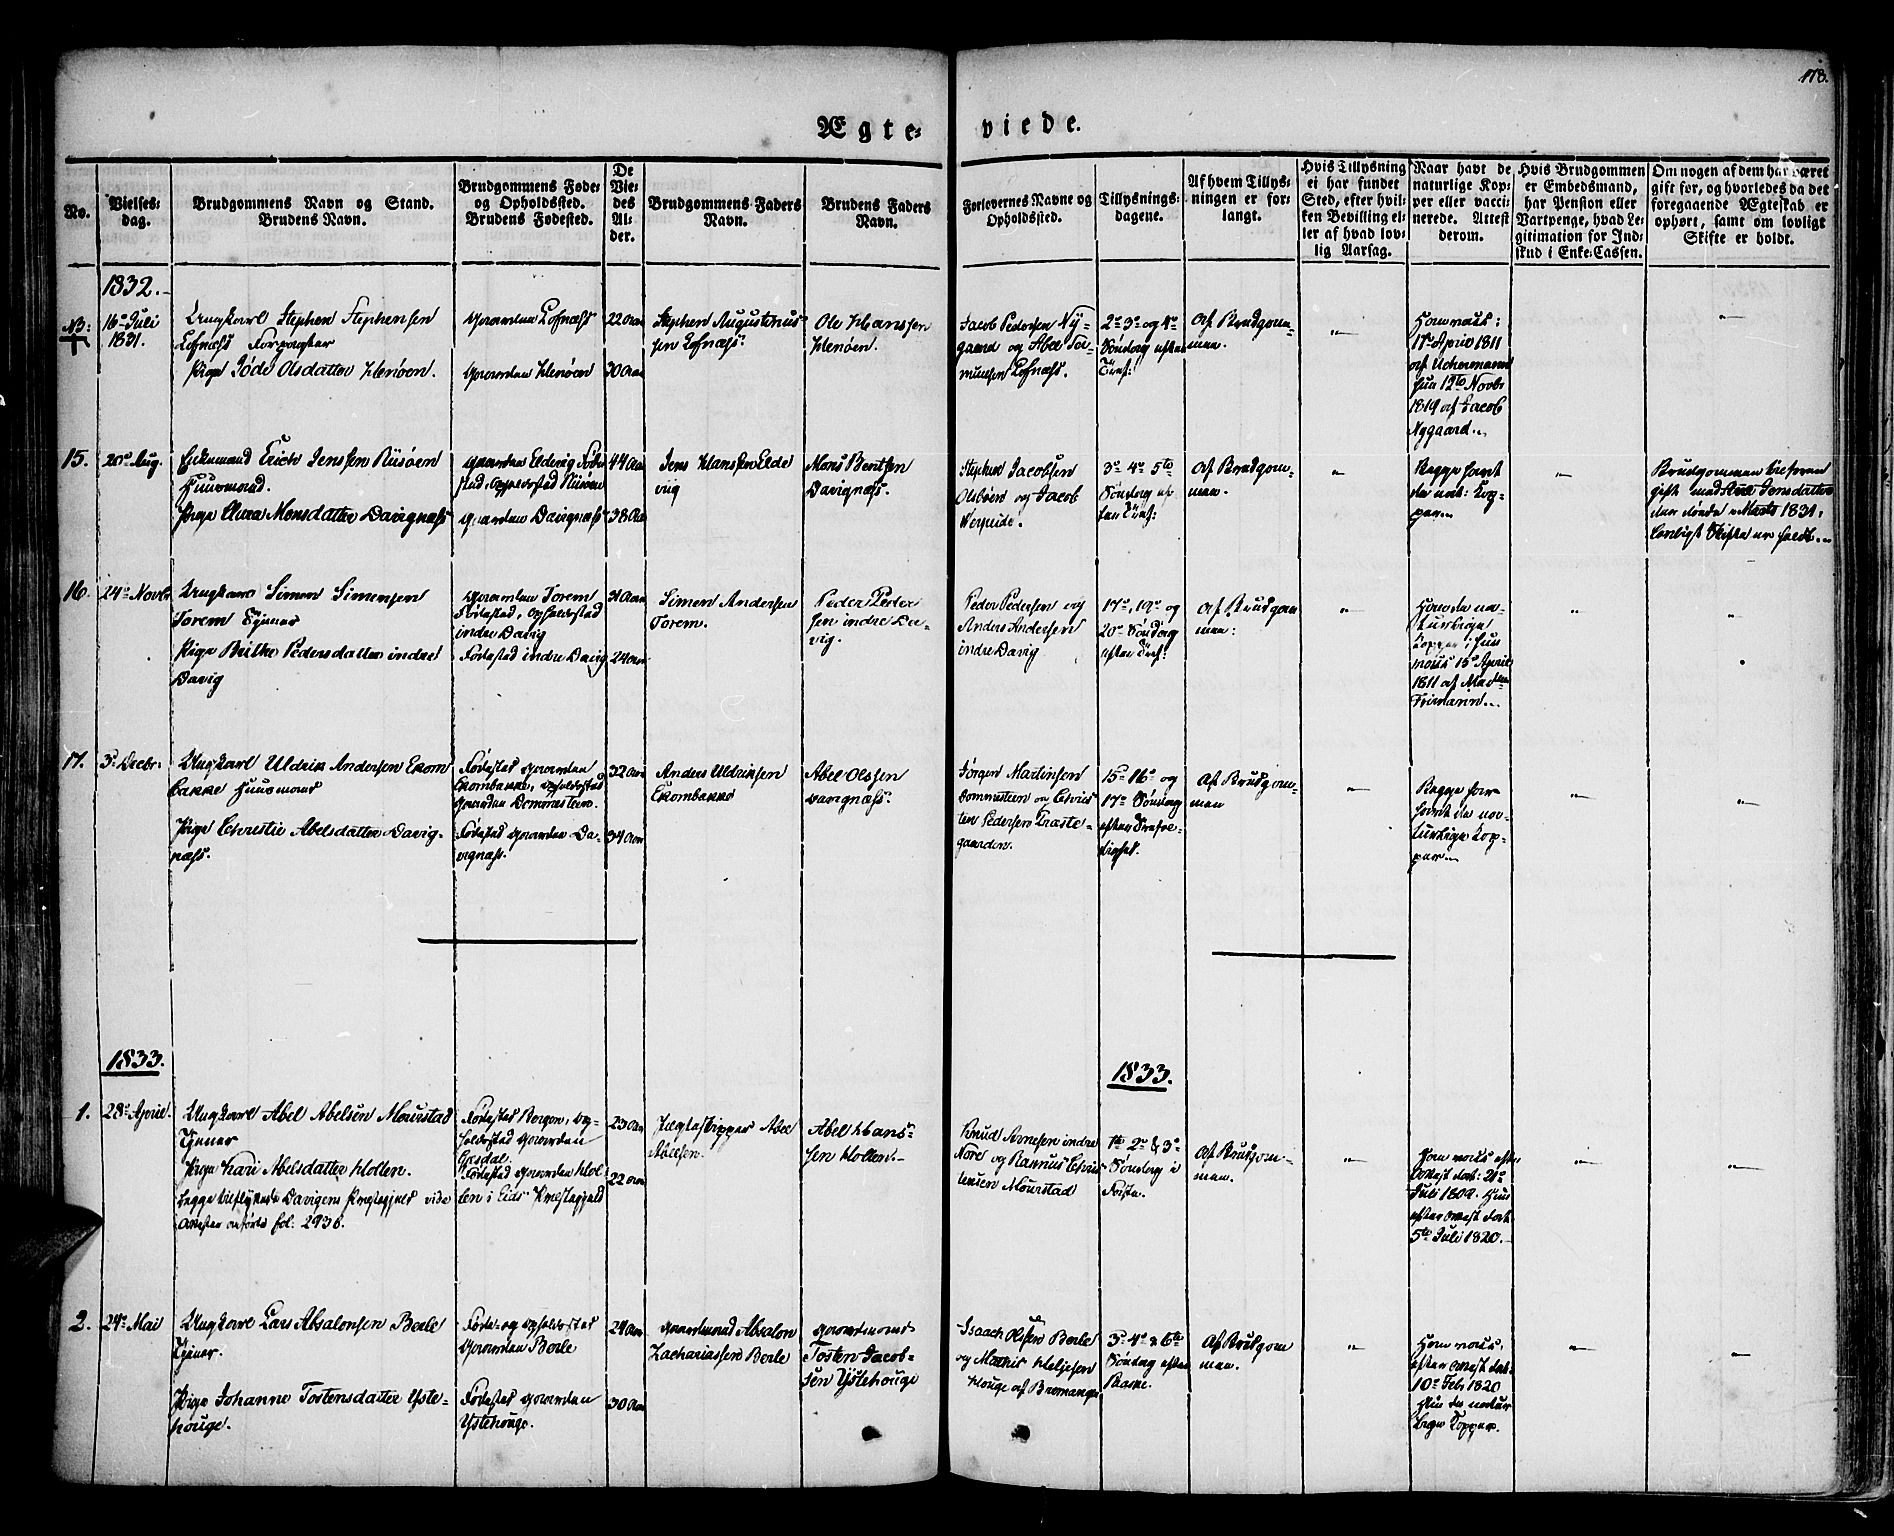 118.
Ægte- viede.
No.
Vielses-
dag.
Brudgommens Navn og Stand.
Brudens Navn.
Brudgommens Føde-
og Opholdssted.
Brudens Fødested.
De
Vie-
des
Al-
der.
Brudgommens Faders
Navn.
Brudens Faders
Navn.
Forlovernes Navne og
Opholdssted.
Tillysnings-
dagene.
Af hvem Tillys-
ningen er for-
langt.
Hvis Tillysning
ei har fundet
Sted, efter hvil-
ken Bevilling el-
ler af hvad lov-
lig Aarsag.
Naar havt de
naturlige Kop-
per eller vacci-
nerede. Attest
derom.
Hvis Brudgommen
er Embedsmand,
har Pension eller
Vartpenge, hvad Le-
gitimation for Ind-
skud i Enke-Cassen.
Om nogen af dem har været
gift før, og hvorledes da det
foregaaende Ægteskab er
ophørt, samt om lovligt
Skifte er holdt.
1832.
NB:
16de Juli
1831.
Ungkarl Stephen Stephensen
Lefnæss Forpagter
Pige Jøde Olsdatter Henøen.
Gaarden Lefnæss
Gaarden Henøen
22 Aar
30 Aar
Stephen Augustinus
sen Lefnæss.
Ole Hanssen
Henøen.
Jacob Pedersen Ny-
gaard og Abel Sa-
muelsen Lefnæss.
2de 3de og 4de
Søndag efter
Tref:
Af Brudgom-
men.
Ham vacc:
17de April 1811
af Uchermann
hun 12te Novbr
1819 af Jacob
Nygaard.
15.
20de Aug.
Enkemand Erich Jenssen Risøen
Huusmand.
Pige Anna Monsdatter Davignæss
Gaarden Eldevig Føde-
sted, Opholdssted Risøen
Gaarden Davignæss
44 Aar
38 Aar
Jens Hanssen Elde
viig
Mons Bentsen
Davignæss.
Stephen Jacobsen
Olsbøen og Jacob
3de 4de 5te
Søndag ef-
ter Tref:
Af Brudgom-
men.
Begge havt
de nat: Kop-
per.
Brudgommen tilforen
gift med Jensdatter
der døde Marts 1831.
Lovligt Skifte er holdt.
16.
24de Novbr
Ungkarl Simon Simensen
Torem Tjener
Pige Brithe Pedersdatter indre
Davig
Gaarden Torem
Fødested, Opholdssted
indre Davig
Fødested indre Davig
31 Aar
24 Aar
Simen Andersen
Torem.
Peder Peder
sen indre Da-
vig.
Peder Pedersen og
Anders Andersen
indre Davig
17de, 19de og
20de Søndag
efter Tref:
Af Brudgom
men:
Ham de na-
turlige
Kopper; hun
vacc. 15de April
1811 af Mad
Friemann.
17.
3de Decbr.
Ungkarl Uldrik Andersen Ekom
bakke Huusmand
Pige Christie Abelsdatter Davig-
næss.
Fødested Gaarden
Ekombakke, Opholdssted
Gaarden Domorsteen.
Fødested Gaarden Da-
vignæss.
32 Aar
34 Aar
Anders Uldriksen
Ekombakke
Abel Olssen
Davignæss.
Jørgen Martinsen
Dommesteen og Chris
ten Pedersen Præste-
gaarden.
15de 16de og
17de Søndag
efter Trefol-
dighed.
Af Brudgom-
men
Begge har
havt de na-
turlige Kop-
per.
1833.
1833.
1.
28de April.
Ungkarl Abel Abelsen Mourstad
Tjener
Pige Kari Abelsdatter Hollen.
begge tilflyttede Davigens Præstegjeld vide
Attester anførte fol: 293 b.
Fødested Bergen, Op-
holdssted Gaarden
Fødested Gaarden Hol-
len i Eids Præstegjeld
23 Aar
22 Aar
Jægteskipper Abel
Abelsen.
Abel Hans-
sen Hollen.
Knud Arnesen indre
Nore og Rasmus Chris
tensen Mourstad
1ste 2de & 3de
Søndag i
Faste.
Af Brudgom-
men.
Ham vacc. efter
Attest dat: 21de
Juli 1809. Hun
efter Attest dat.
5te Juli 1820.
2.
24de Mai
Ungkarl Lars Absalonsen Berle
Tjener.
Pige Johanne Tostensdatter Yste-
houge.
Føde- og Opholdssted
Gaarden Berle
Fødested Gaarden
Ystehouge.
24 Aar
30 Aar
Gaardmand Absalon
Zachariassen Berle
Gaardmand
Tosten Jacob-
sen Ystehouge
Isaach Olssen Berle
og Mathis Heljesen
Houge af Bremanger
3de 4de & 6te
Søndag efter
Paaske.
Af Brudgom
men.
Ham vacc.
efter Attest dat.
10de Feb: 1820
Hun de natur
lige Kopper.